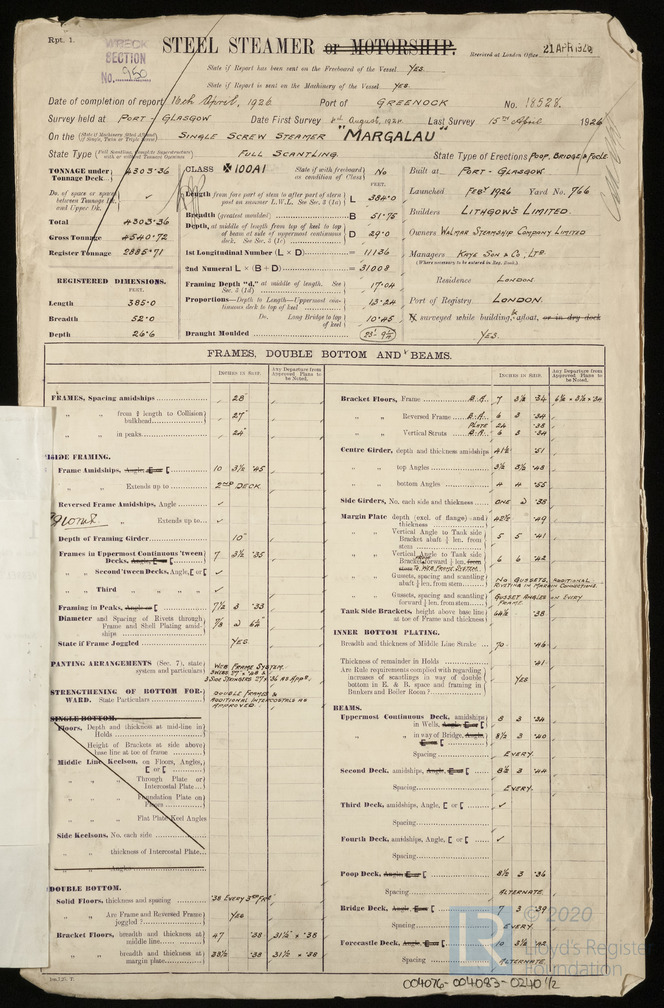 Rpt. 1.
WRECK SECTION
No. 950
STEEL STEAMER or MOTORSHIP.
Received at London Office 21 APR 1926
State if Report has been sent on the Freeboard of the Vessel YES
State if Report is sent on the Machinery of the Vessel YES
Date of completion of report 16th April, 1926 Port of GREENOCK No. 18528
Survey held at PORT-GLASGOW Date First Survey August, 192 Last Survey 15th April 1926
On the SINGLE SCREW STEAMER "MARGALAU"
State Type FULL SCANTLING State Type of Erections POOP, BRIDGE & FOCLE
TONNAGE under Tonnage Deck 4303.36
Do. of space or spaces between Tonnage Dk. and Upper Dk. ✓
Total 4303.36
Gross Tonnage 4540.72
Register Tonnage 2885.71
REGISTERED DIMENSIONS.
FEET.
Length 385.0
Breadth 52.0
Depth 26.6
CLASS ✠ 100A1 State if with freeboard as condition of Class No
FEET.
Length from fore part of stem to after part of stern post on summer L.W.L. See Sec. 3 (1a) L 384.0
Breadth (greatest moulded) B 51.75
Depth, at middle of length from top of keel to top of beam at side of uppermost continuous deck. See Sec. 3 (1c) D 29.0
1st Longitudinal Number (L × D) = 11136
2nd Numeral L × (B + D) = 31008
Framing Depth "d," at middle of length. See Sec. 3 (1d) 17.04
Proportions—Depth to Length—Uppermost continuous deck to top of keel 13.24
Do. Long Bridge to top of keel 10.45
Draught Moulded
Built at PORT-GLASGOW
Launched FEBY 1926 Yard No. 766
Builders LITHGOWS LIMITED.
Owners WALMAR STEAMSHIP COMPANY LIMITED
Managers KAYE SON & CO., LTD.
(Where necessary to be entered in Reg. Book.)
Residence LONDON.
Port of Registry LONDON.
If surveyed while building, afloat, or in dry dock
YES.
FRAMES, DOUBLE BOTTOM AND BEAMS.
INCHES IN SHIP. Any Departure from Approved Plans to be Noted.
FRAMES, Spacing amidships 28"
" " from ⅗ length to Collision bulkhead 27"
" " in peaks 24"
SIDE FRAMING.
Frame Amidships, Angle, [ 10 3½ .45
" " Extends up to 2ND DECK
Reversed Frame Amidships, Angle ✓
" " Extends up to ✓
Depth of Framing Girder 10"
Frames in Uppermost Continuous 'tween Decks, Angle, [ 7 3½ .35
" " Second 'tween Decks, Angle, [ or [ ✓
" " Third " " ✓
Framing in Peaks, Angle or [ 7½ 3 .33
Diameter and Spacing of Rivets through Frame and Shell Plating amidships
State if Frame Joggled YES
PANTING ARRANGEMENTS (Sec. 7), state system and particulars WEB FRAME SYSTEM.
STRENGTHENING OF BOTTOM FORWARD. State Particulars DOUBLE FRAMES & ADDITIONAL INTERCOSTALS AS APPROVED.
SINGLE BOTTOM.
Floors, Depth and thickness at mid-line in Holds
Height of Brackets at side above base line at toe of frame
Middle Line Keelson, on Floors, Angles, [ or [
" " Through Plate or Intercostal Plate
" " Foundation Plate on Floors
" " Flat Plate Keel Angles
Side Keelsons, No. each side
" " thickness of Intercostal Plate
" " Angles
DOUBLE BOTTOM.
Solid Floors, thickness and spacing .38 EVERY 3RD FRE
" " Are Frame and Reversed Frame joggled? YES
Bracket Floors, breadth and thickness at middle line 47 .38 31½" × .38
" " breadth and thickness at margin plate 38½ .38 31½ × .38
INCHES IN SHIP. Any Departure from Approved Plans to be Noted.
Bracket Floors, Frame B.A. 7 3½ .34 6½ × 3½ × .34
" " Reversed Frame B.A. 6 3 .34
" " Vertical Struts PLATE 24 .38 B.A. 6 3 .34
Centre Girder, depth and thickness amidships 41½ .51
" " top Angles 3½ 3½ .48
" " bottom Angles 4 4 .55
Side Girders, No. each side and thickness ONE @ .38
Margin Plate depth (excl. of flange) and thickness 42½ .49
" " Vertical Angle to Tank side Bracket abaft ¼ len. from stem 5 5 .41
" " Vertical Angle to Tank side Bracket forward ¼ len. from stem TO WEB FRAME SYSTEM 6 6 .42
" " Gussets, spacing and scantling abaft ¼ len. from stem NO GUSSETS, ADDITIONAL RIVETING IN MARGIN CONNECTIONS.
" " Gussets, spacing and scantling forward ¼ len. from stem GUSSET ANGLES ON EVERY FRAME
Tank Side Brackets, height above base line at toe of Frame and thickness 64½ .38
INNER BOTTOM PLATING.
Breadth and thickness of Middle Line Strake 70 .46
Thickness of remainder in Holds .41
Are Rule requirements complied with regarding increases of scantlings in way of double bottom in E. & B. space and framing in Bunkers and Boiler Room? YES
BEAMS.
Uppermost Continuous Deck, amidships in Wells, Angle, [ 8 3 .34
" " in way of Bridge, Angle, [ 8½ 3 .40
Spacing EVERY.
Second Deck, amidships, Angle, [ 8½ 3 .44
Spacing EVERY.
Third Deck, amidships, Angle, [ or [ ✓
Spacing
Fourth Deck, amidships, Angle, [ or [ ✓
Spacing
Poop Deck, Angle, [ 8½ 3 .36
Spacing ALTERNATE
Bridge Deck, Angle, [ 7 3 .39
Spacing EVERY.
Forecastle Deck, Angle, [ 10 3½ .42
Spacing ALTERNATE
© 2020
Lloyd's Register
Foundation
004076-004083-0240 1/2